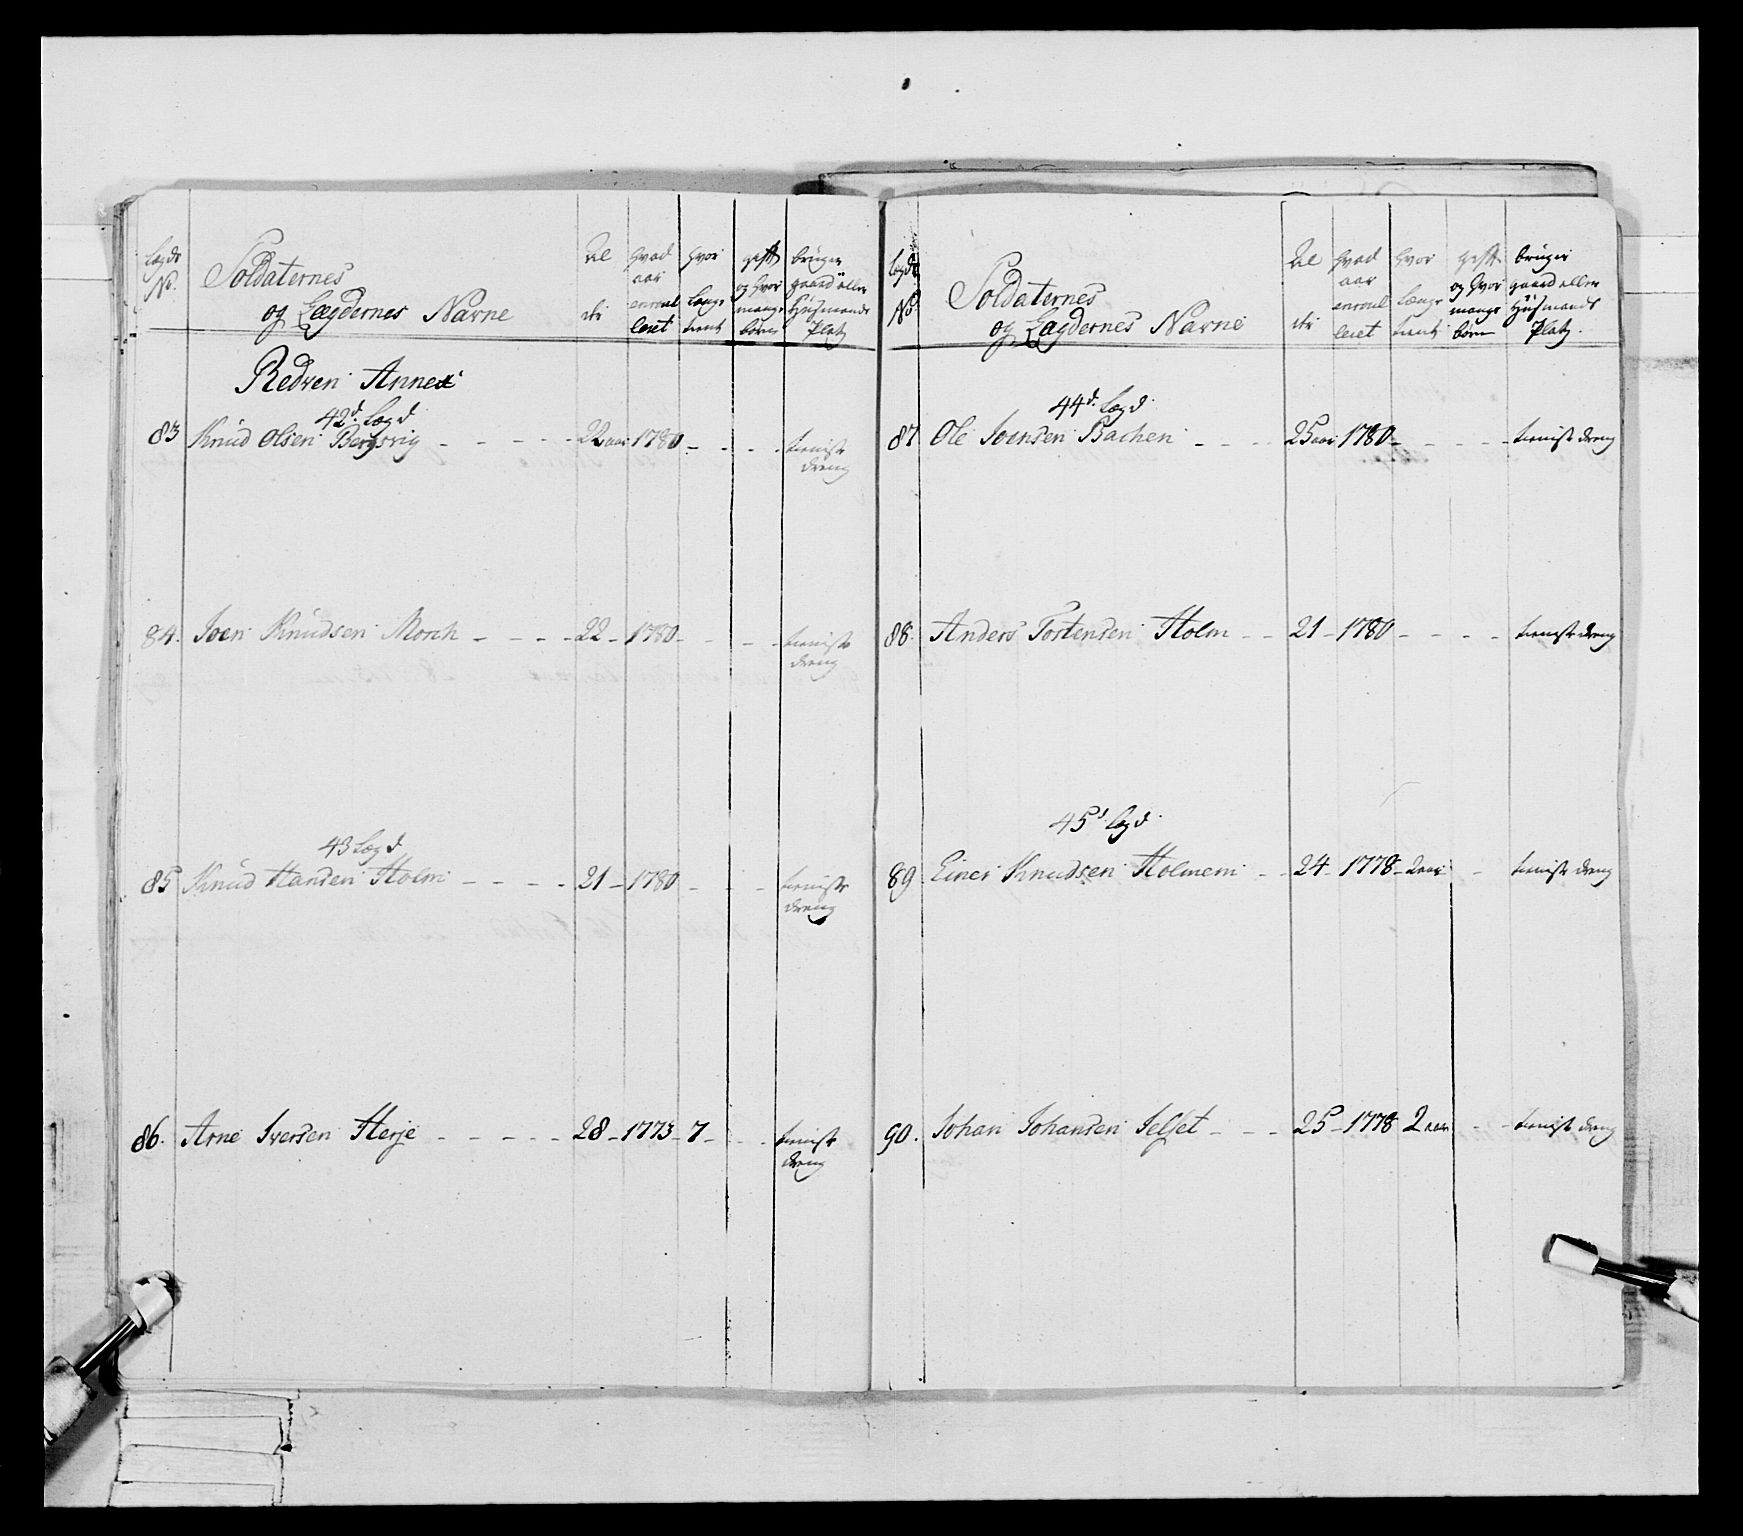 Lægds No. | Soldaternes og Lægdernes Navne | Al der | hvad aar enroul leret | hvor længe tient | gift og hvor mange børn | bruger gaard eller Huusmands Platz
Redven Annex
42d. Lægd
83 Knud Olsen Bergsvig - - - - 22 aar 1780 - - - - tieniste dreng
84. Joen Knudsen Morch - - - - 22 - 1780 - - - - tieniste dreng
43 Lægd
85 Knud Hansen Holm - - - - 21 - 1780 - - - tieniste dreng
86. Arne Iversen Herje - - - - - 28 - 1773 - 7 - - - tieniste dreng
Lægds No. | Soldaternes og Lægdernes Navne | Al der | hvad aar enroul leret | hvor længe tient | gift og hvor mange børn | bruger gaard eller Huusmands Platz.
44d. Lægd
87 Ole Joensen Bachen - - - - 25 aar 1780 - - - - - tieniste dreng
88. Anders Tostensen Holm - - 21 - 1780 - - - - tieniste dreng
45d Lægd
89 Einer Knudsen Holmem - - 24 - 1778 - 2 aar - tieniste dreng
90. Johan Johansen Selset - - - 25 - 1778 2 aar - - tieniste dreng